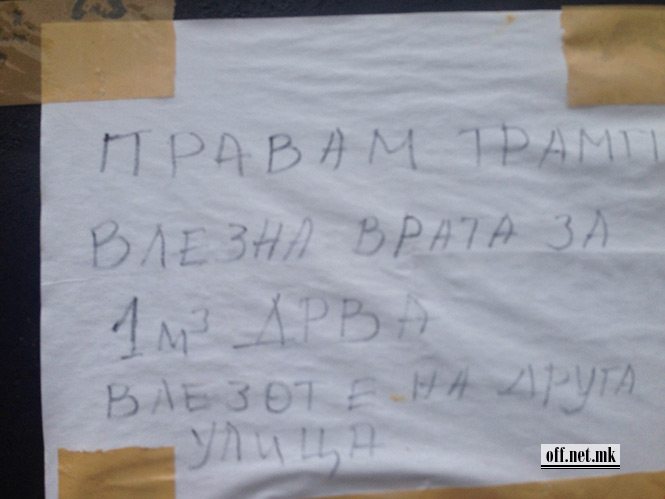 ПРАВАМ ТРАМП
ВЛЕЗНА ВРАТА ЗА
1м³ ДРВА
ВЛЕЗОТ Е НА ДРУГА
УЛИЦА
off.net.mk